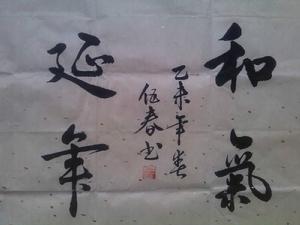 和氣
延年
乙未年春
伍春书